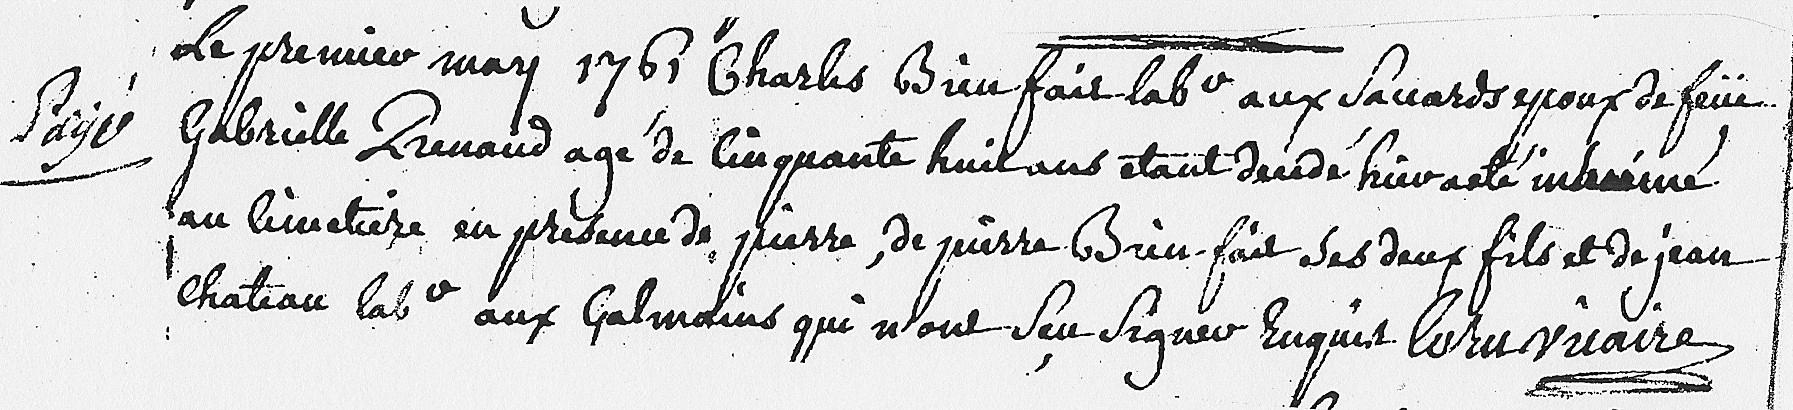 Le premier may 1761 Charles Bienfait labr aux Savards epoux de feüe
Payé
Gabrielle Renaud agé de Cinquante huit ans etant decedé hier a eté inhumé
au Cimetiere en presence de pierre, de pierre Bien-fait Ses deux fils et de jean
Chateau labr aux Galmoins qui n'ont Sçu Signer Enquis vicaire